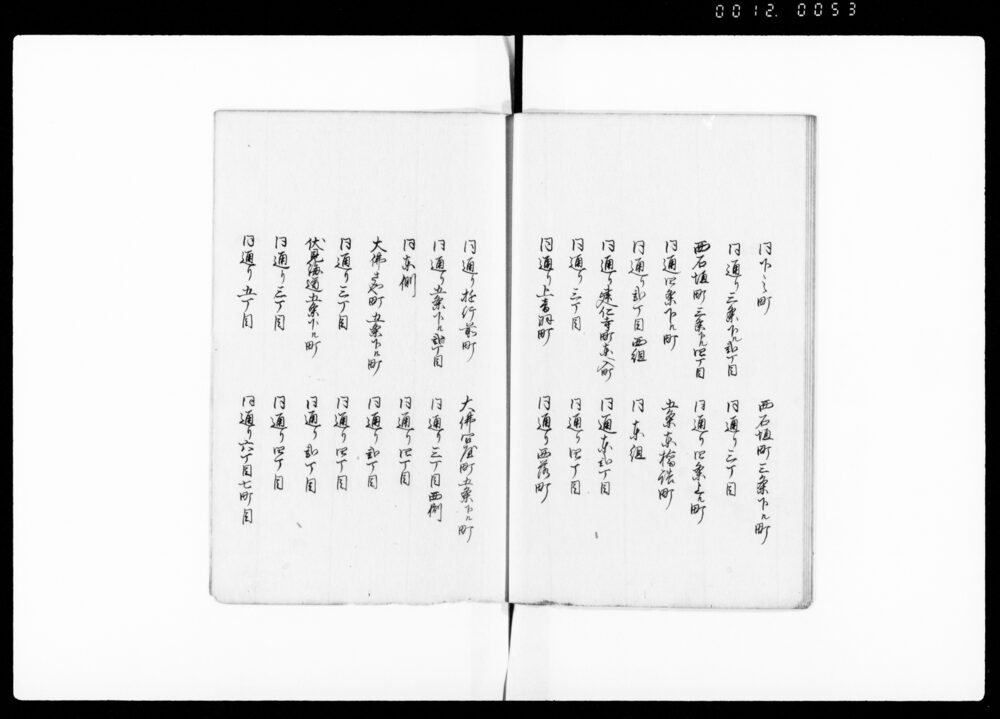 0012.0053
同下之町
西石垣町三条下ル町
同通り三条下ル弐丁目
同通り三丁目
西石垣町三条下ル四丁目
同通り四条上ル町
同通四条下ル町
五条東橋詰町
同通り弐丁目西組
同東組
同通り建仁寺町東入町
同通東弐丁目
同通り三丁目
同通り四丁目
同通り上音羽町
同通り西落町
同通り遊行前町
大佛宮屋町五条下ル町
同通り五条下ル弐丁目
同通り三丁目西側
同東側
同通り四丁目
大佛 町五条下ル町
同通り弐丁目
同通り三丁目
同通り四丁目
伏見海道五条下ル町
同通り弐丁目
同通り三丁目
同通り四丁目
同通り五丁目
同通り六丁目七町目